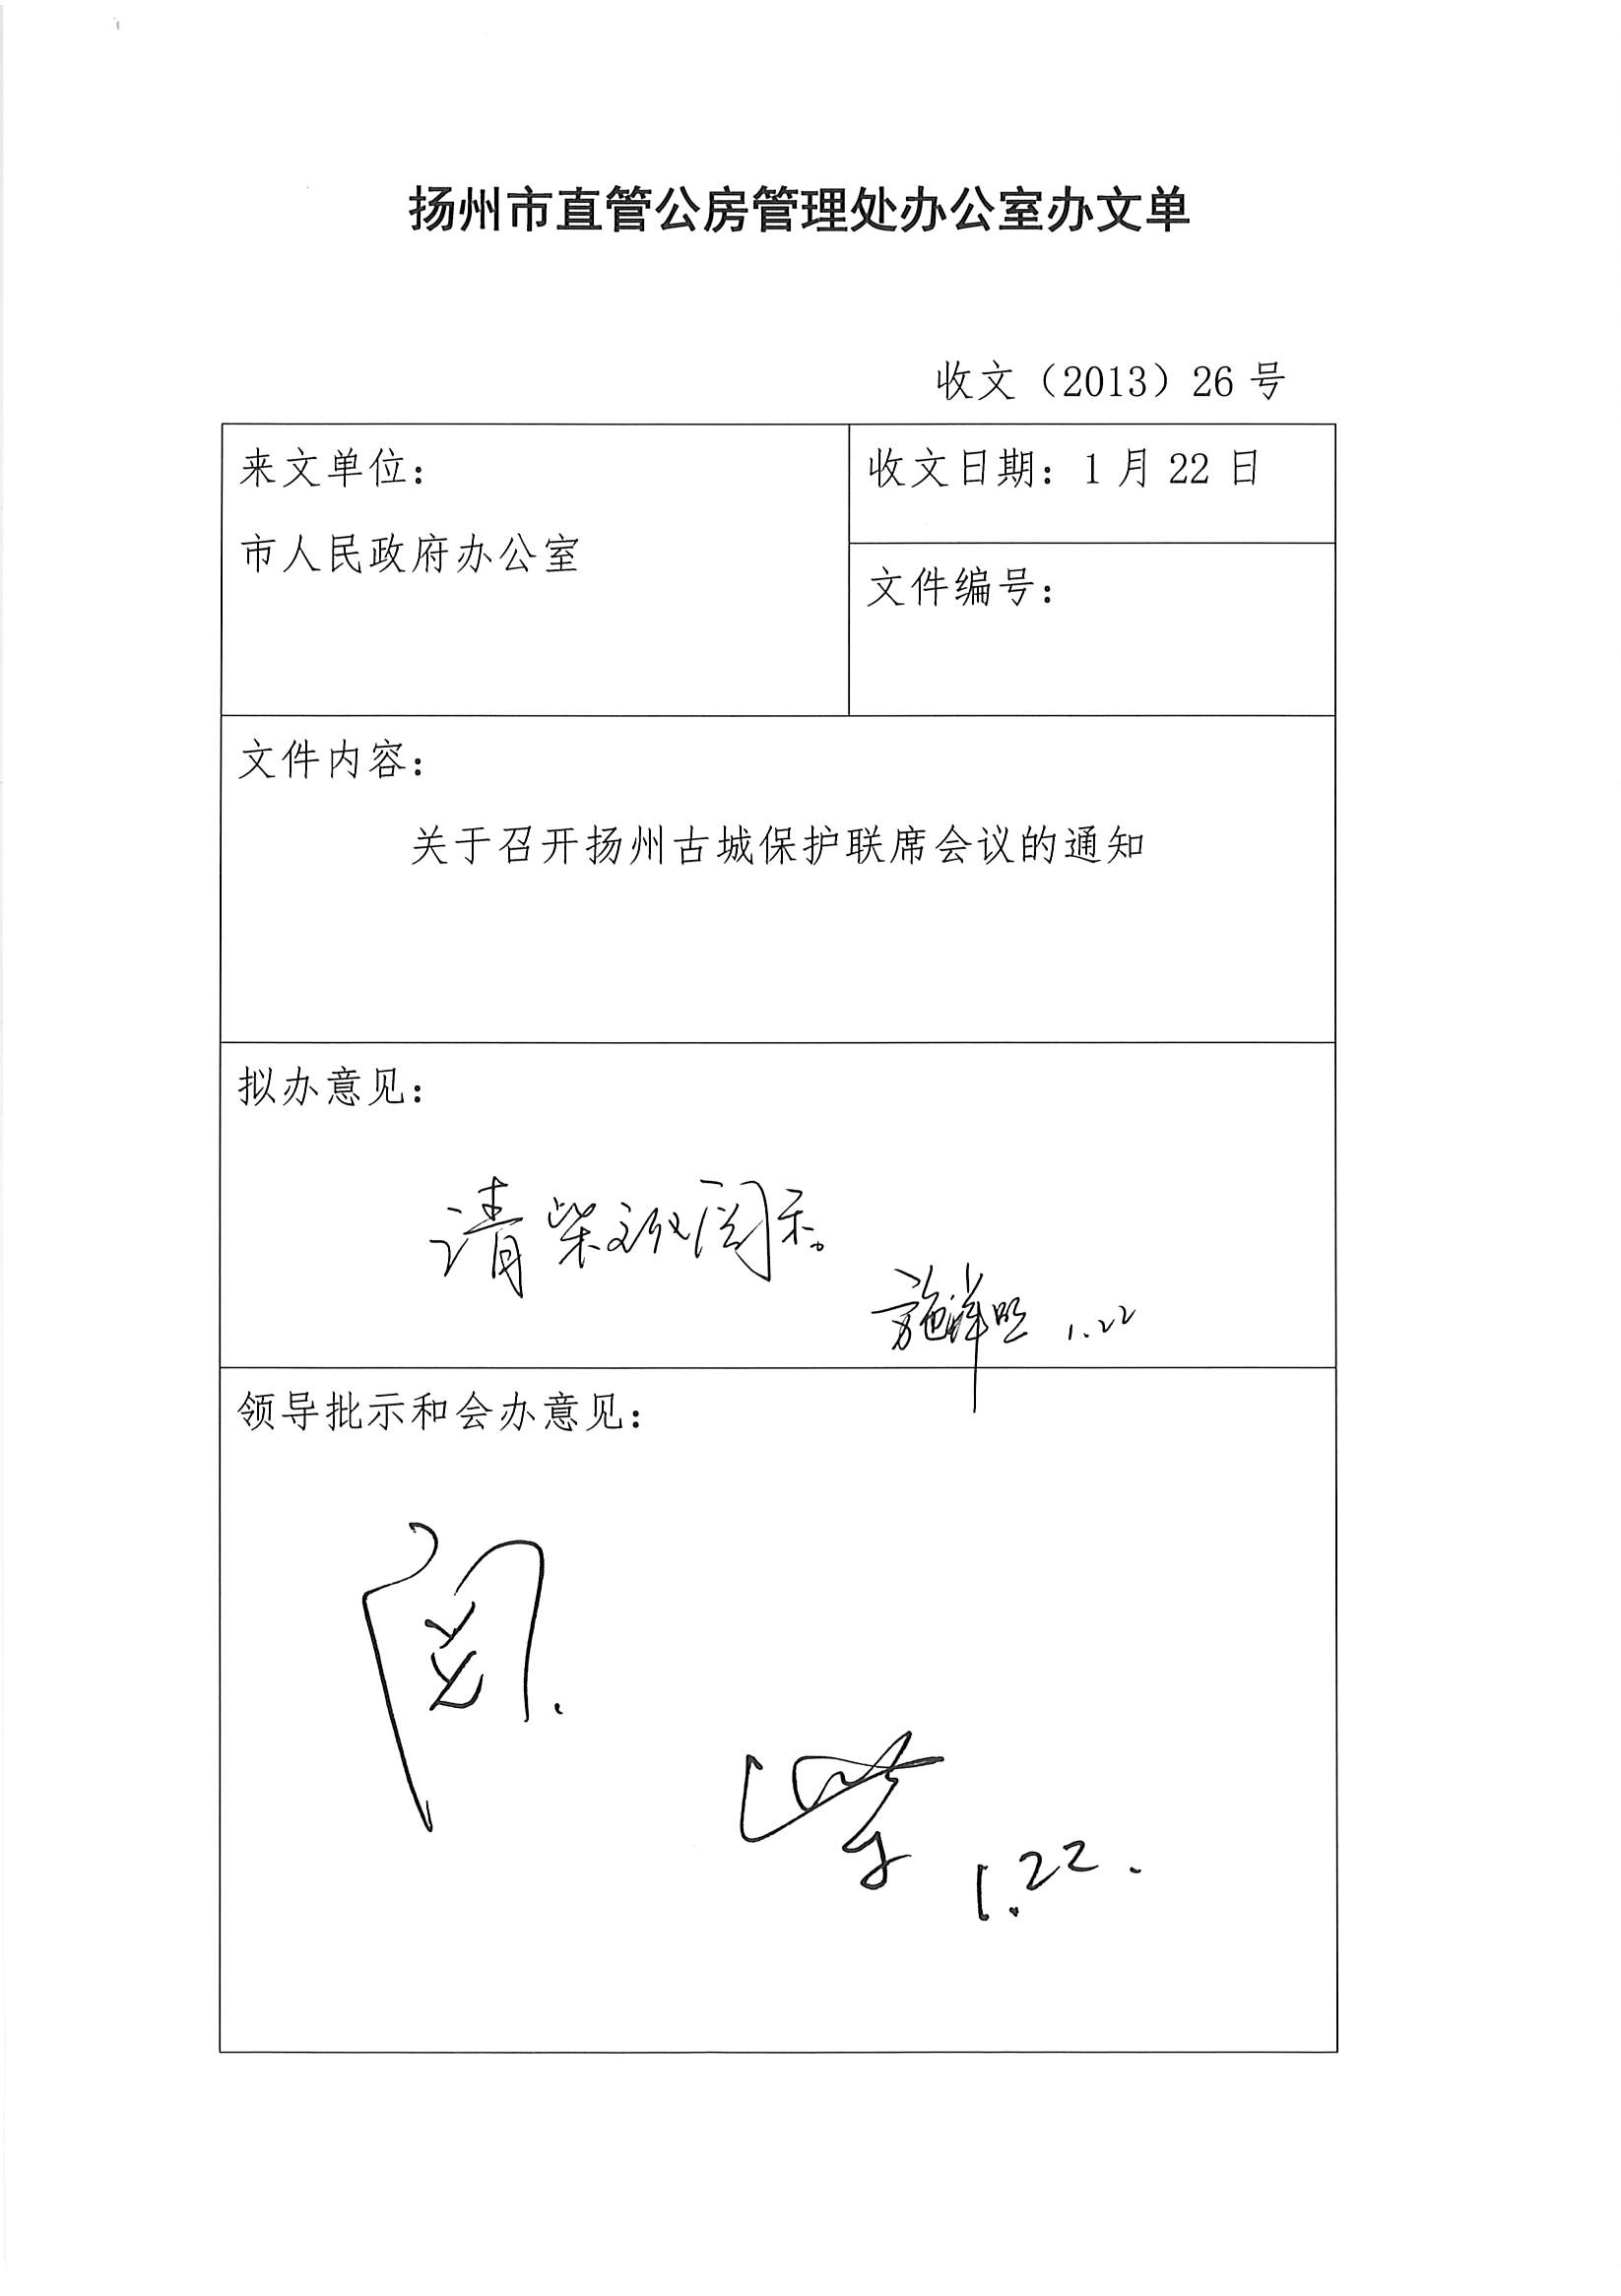 扬州市直管公房管理处办公室办文单
收文（2013）26 号
来文单位：
市人民政府办公室
收文日期：1 月 22 日
文件编号：
文件内容：
关于召开扬州古城保护联席会议的通知
拟办意见：
请柴 阅示。
施 1.22
领导批示和会办意见：
阅.
柴 1.22.